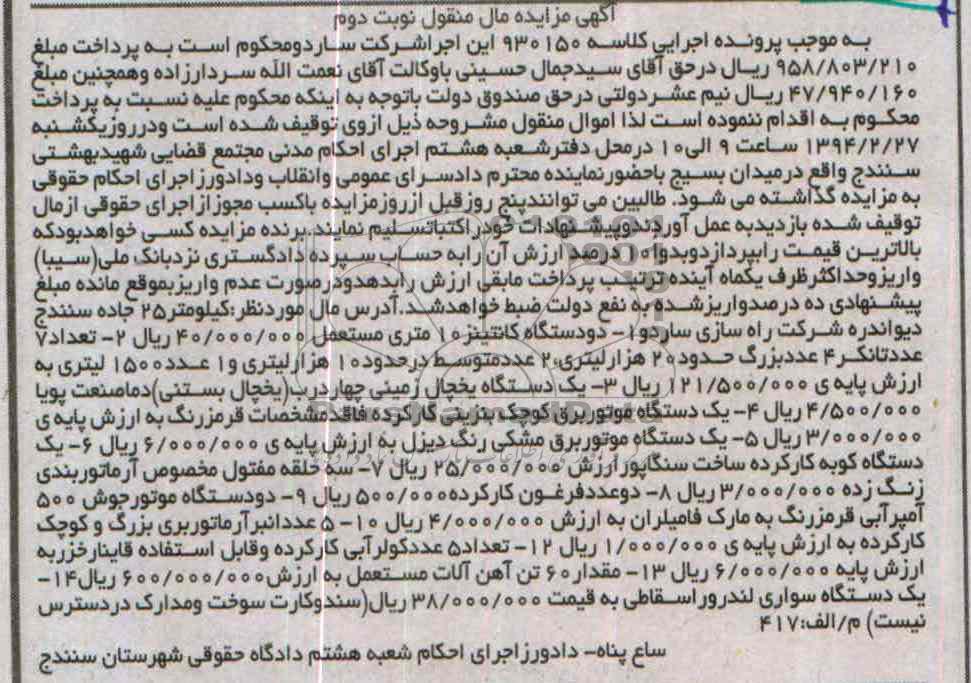 آگهی مزایده مال منقول نوبت دوم
به موجب پرونده اجرایی کلاسه ۹۳۰۱۵۰ این اجراشرکت ساردومحکوم است به پرداخت مبلغ
۹۵۸/۸۰۳/۲۱۰ ریال درحق آقای سیدجمال حسینی باوکالت آقای نعمت الله سردارزاده وهمچنین مبلغ
۴۷/۹۴۰/۱۶۰ ریال نیم عشردولتی درحق صندوق دولت باتوجه به اینکه محکوم علیه نسبت به پرداخت
محکوم به اقدام ننموده است لذا اموال منقول مشروحه ذیل ازوی توقیف شده است ودرروزیکشنبه
۱۳۹۴/۲/۲۷ ساعت ۹ الی۱۰ درمحل دفترشعبه هشتم اجرای احکام مدنی مجتمع قضایی شهیدبهشتی
سنندج واقع درمیدان بسیج باحضورنماینده محترم دادسرای عمومی وانقلاب ودادورزاجرای احکام حقوقی
به مزایده گذاشته می شود. طالبین می توانندپنج روزقبل ازروزمزایده باکسب مجوزازاجرای حقوقی ازمال
توقیف شده بازدیدبه عمل آوردندوپیشنهادات خودراکتباتسلیم نمایند.برنده مزایده کسی خواهدبودکه
بالاترین قیمت رابپردازدوبدوا۱۰ درصد ارزش آن رابه حساب سپرده دادگستری نزدبانک ملی(سیبا)
واریزوحداکثرظرف یکماه آینده ترتیب پرداخت مابقی ارزش رابدهدودرصورت عدم واریزبموقع مانده مبلغ
پیشنهادی ده درصدواریزشده به نفع دولت ضبط خواهدشد.آدرس مال موردنظر:کیلومتر۲۵ جاده سنندج
دیواندره شرکت راه سازی ساردو۱- دودستگاه کانتینز۱۰ متری مستعمل ۴۰/۰۰۰/۰۰۰ ریال ۲- تعداد۷
عددتانکر۴ عددبزرگ حدود۲۰ هزارلیتری،۲ عددمتوسط درحدود۱۰ هزارلیتری و۱ عدد۱۵۰۰ لیتری به
ارزش پایه ی ۱۲۱/۵۰۰/۰۰۰ ریال ۳- یک دستگاه یخچال زمینی چهاردرب(یخچال بستنی)دماصنعت پویا
۴/۵۰۰/۰۰۰ ریال ۴- یک دستگاه موتوربرق کوچک بنزینی کارکرده فاقدمشخصات قرمزرنگ به ارزش پایه ی
۳/۰۰۰/۰۰۰ ریال ۵- یک دستگاه موتوربرق مشکی رنگ دیزل به ارزش پایه ی ۶/۰۰۰/۰۰۰ ریال ۶- یک
دستگاه کوبه کارکرده ساخت سنگاپورارزش ۲۵/۰۰۰/۰۰۰ ریال ۷- سه حلقه مفتول مخصوص آرماتوربندی
زنگ زده ۳/۰۰۰/۰۰۰ ریال ۸- دوعددفرغون کارکرده۵۰۰/۰۰۰ ریال ۹- دودستگاه موتورجوش ۵۰۰
آمپرآبی قرمزرنگ به مارک فامیلران به ارزش ۴/۰۰۰/۰۰۰ ریال ۱۰- ۵ عددانبرآرماتوربری بزرگ و کوچک
کارکرده به ارزش پایه ی ۱/۰۰۰/۰۰۰ ریال ۱۲- تعداد۵ عددکولرآبی کارکرده وقابل استفاده قاینارخزربه
ارزش پایه ۶/۰۰۰/۰۰۰ ریال ۱۳- مقدار۶۰ تن آهن آلات مستعمل به ارزش۶۰۰/۰۰۰/۰۰۰ ریال۱۴-
یک دستگاه سواری لندروراسقاطی به قیمت ۳۸/۰۰۰/۰۰۰ ریال(سندوکارت سوخت ومدارک دردسترس
نیست) م/الف:۴۱۷
ساع پناه- دادورزاجرای احکام شعبه هشتم دادگاه حقوقی شهرستان سنندج